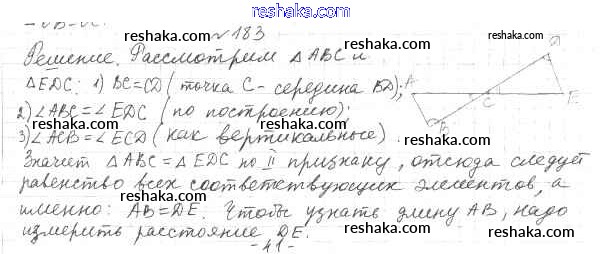 reshaka.com
№ 183
reshaka.com
Решение. Рассмотрим △ABC и
△EDC: 1) BC=CD (точка C - середина BD);
2) ∠ABC=∠EDC (по построению);
3) ∠ACB=∠ECD (как вертикальные)
Значит △ABC=△EDC по II признаку, отсюда следует
равенство всех соответствующих элементов, а
именно: AB=DE. Чтобы узнать длину AB, надо
измерить расстояние DE.
- 41 -
A
D
C
E
B
reshaka.com
reshaka.com
reshaka.com
reshaka.com
reshaka.com
reshaka.com
reshaka.com
reshaka.com
reshaka.com
reshaka.com
reshaka.com